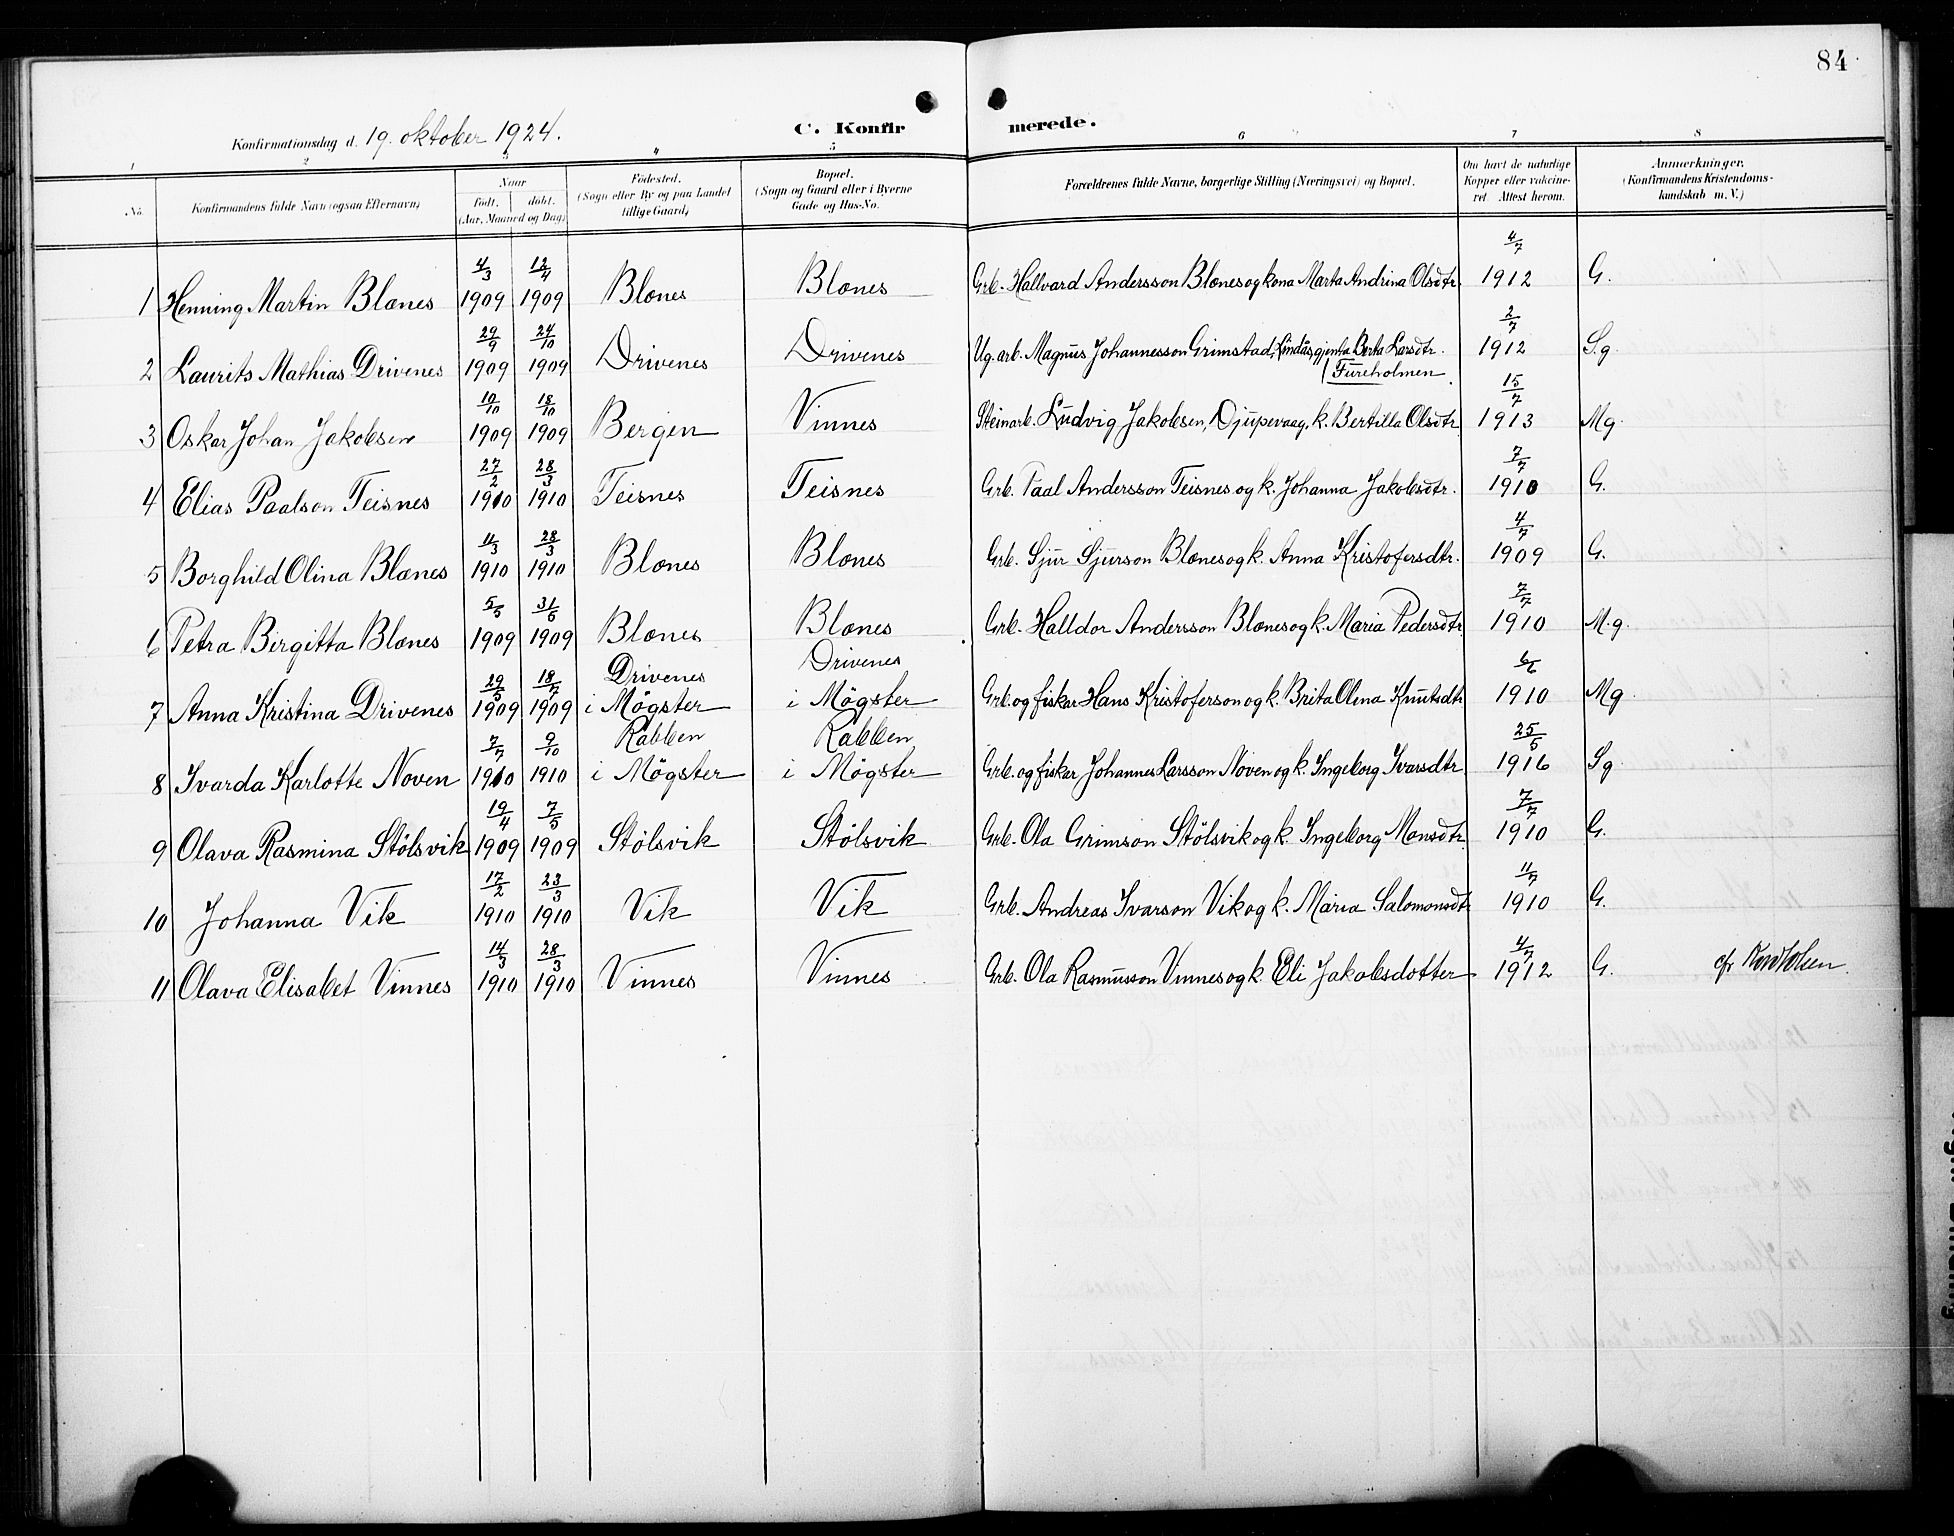 84.
Konfirmationsdag d. 19. oktober 1924.
C. Konfirmerede.
1 2 3 4 5 6 7 8
No. Konfirmandens fulde Navn (ogsaa Efternavn) Naar født. døbt. (Aar, Maaned og Dag) Fødested. (Sogn eller By og paa Landet tillige Gaard) Bopæl. (Sogn og Gaard eller i Byerne Gade og Hus-No. Forældrenes fulde Navne, borgerlige Stilling (Næringsvei) og Bopæl. Om havt de naturlige Kopper eller vakcineret. Attest herom. Anmerkninger. (Konfirmandens Kristendomskundskab m. V.)
1 Henning Martin Blænes 4/3 1909 12/4 1909 Blænes Blænes Grb. Hallvard Andersson Blænes og kona Marta Andrina Olsdtr. 4/7 1912 G.
2 Laurits Mathias Drivenes 29/9 1909 24/10 1909 Drivenes Drivenes Ug. arb. Magnus Johannesson Grimstad, Lindås, gjenta Berta Larsdtr. Fureholmen 2/7 1912 S.g.
3 Oskar Johan Jakobsen 10/10 1909 18/10 1909 Bergen Vinnes Steinarb. Ludvig Jakobsen, Djupevaag, k. Bertilla Olsdtr. 15/7 1913 Mg.
4 Elias Paalson Teisnes 27/2 1910 28/3 1910 Teisnes Teisnes Grb. Paal Andersson Teisnes og k. Johanna Jakobsdtr. 7/7 1910 G.
5 Borghild Olina Blænes 11/3 1910 28/3 1910 Blænes Blænes Grb. Sjur Sjurson Blænes og k. Anna Kristofersdtr. 4/7 1909 G.
6 Petra Birgitta Blænes 5/5 1909 31/5 1909 Blænes Blænes Grb. Halldor Andersson Blænes og k. Maria Pedersdtr 7/7 1910 M.g.
7 Anna Kristina Drivenes 29/5 1909 18/7 1909 Drivenes i Møgster Drivenes i Møgster Grb. og fiskar Hans Kristoferson og k. Brita Olena Knutsdtr 6/6 1910 Mg
8 Ivarda Karlotte Noven 7/7 1910 9/10 1910 Rabben i Møgster Rabben i Møgster Grb. og fiskar Johannes Larsson Noven og k. Ingeborg Ivarsdtr 25/5 1916 Sg
9 Olava Rasmina Stølsvik 19/4 1909 7/5 1909 Stølsvik Stølsvik Grb. Ola Grimson Stølsvik og k. Ingeborg Monsdtr 7/7 1910 G.
10 Johanna Vik 17/2 1910 23/3 1910 Vik Vik Grb. Andreas Ivarson Vik og k. Maria Salomonsdtr 11/7 1910 G.
11 Olava Elisabet Vinnes 14/3 1910 28/3 1910 Vinnes Vinnes Grb. Ola Rasmusson Vinnes og k. Eli Jakobsdotter 4/7 1912 G.